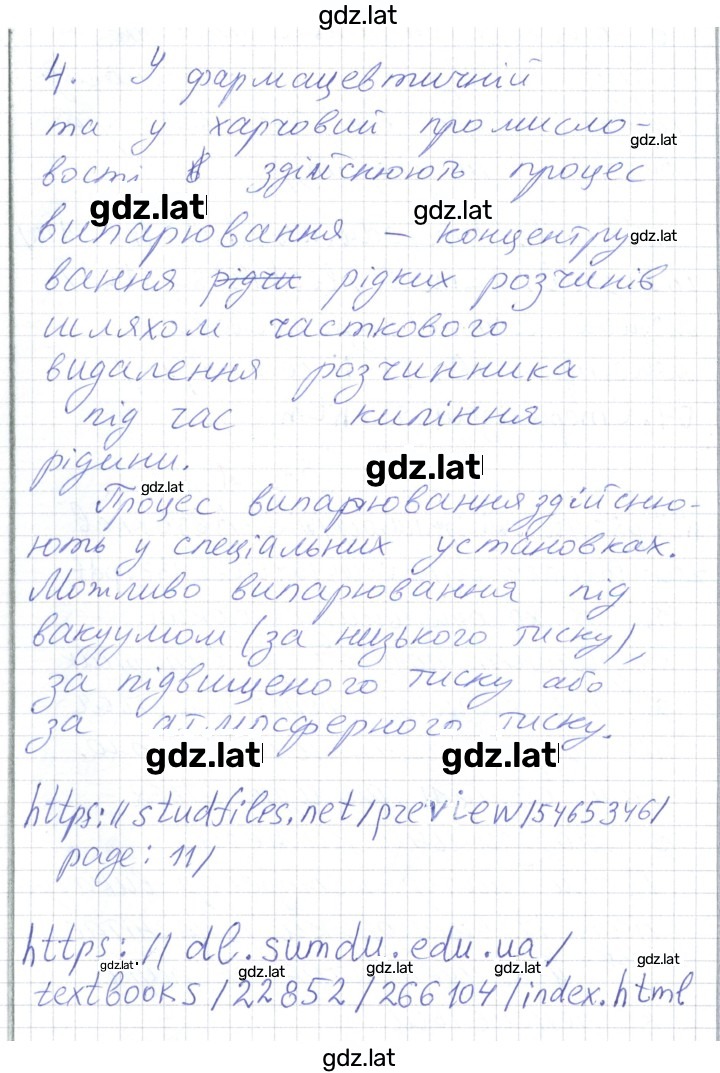 gdz.lat
4. У фармацевтичній
та у харчовий промисло-
gdz.lat
вості здійснюють процес
gdz.lat gdz.lat
випарювання – концентру
gdz.lat
вання рідчи рідких розчинів
шляхом часткового
видалення розчинника
під час кипіння
рідини.
gdz.lat
gdz.lat
Процес випарювання здійсню-
ють у спеціальних установках.
Можливо випарювання під
вакуумом (за низького тиску),
за підвищеного тиску або
за атмосферного тиску.
gdz.lat gdz.lat
https://studfiles.net/preview/5465346/
page: 11/
https://dl.sumdu.edu.ua/
gdz.lat gdz.lat gdz.lat gdz.lat gdz.lat
textbooks/22852/266104/index.html
gdz.lat